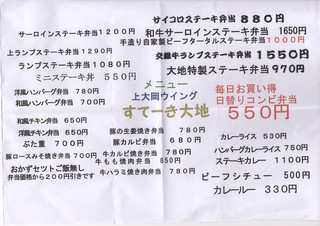 サイコロステーキ弁当 880円
サーロインステーキ弁当 1200円
和牛サーロインステーキ弁当 1650円
手造り自家製ビーフタルタルステーキ弁当 1000円
上ランプステーキ弁当 1290円
交雑牛ランプステーキ弁当 1550円
ランプステーキ弁当 1080円
大地特製ステーキ弁当 970円
ミニステーキ丼 550円
メニュー
上大岡ウイング
すてーき大地
毎日お買い得
日替りコンビ弁当
550円
洋風ハンバーグ弁当 780円
和風ハンバーグ弁当 700円
和風チキン弁当 650円
洋風チキン弁当 650円
ぶた重 700円
豚ロースみそ焼き弁当 700円
おかずセットご飯無し
弁当価格から200円引きです
豚の生姜焼き弁当 780円
豚カルビ弁当 680円
牛カルビ焼き弁当 780円
牛もも焼肉弁当 850円
牛ハラミ焼き肉弁当 780円
カレーライス 530円
ハンバーグカレーライス 750円
ステーキカレー 1100円
ビーフシチュー 500円
カレールー 330円